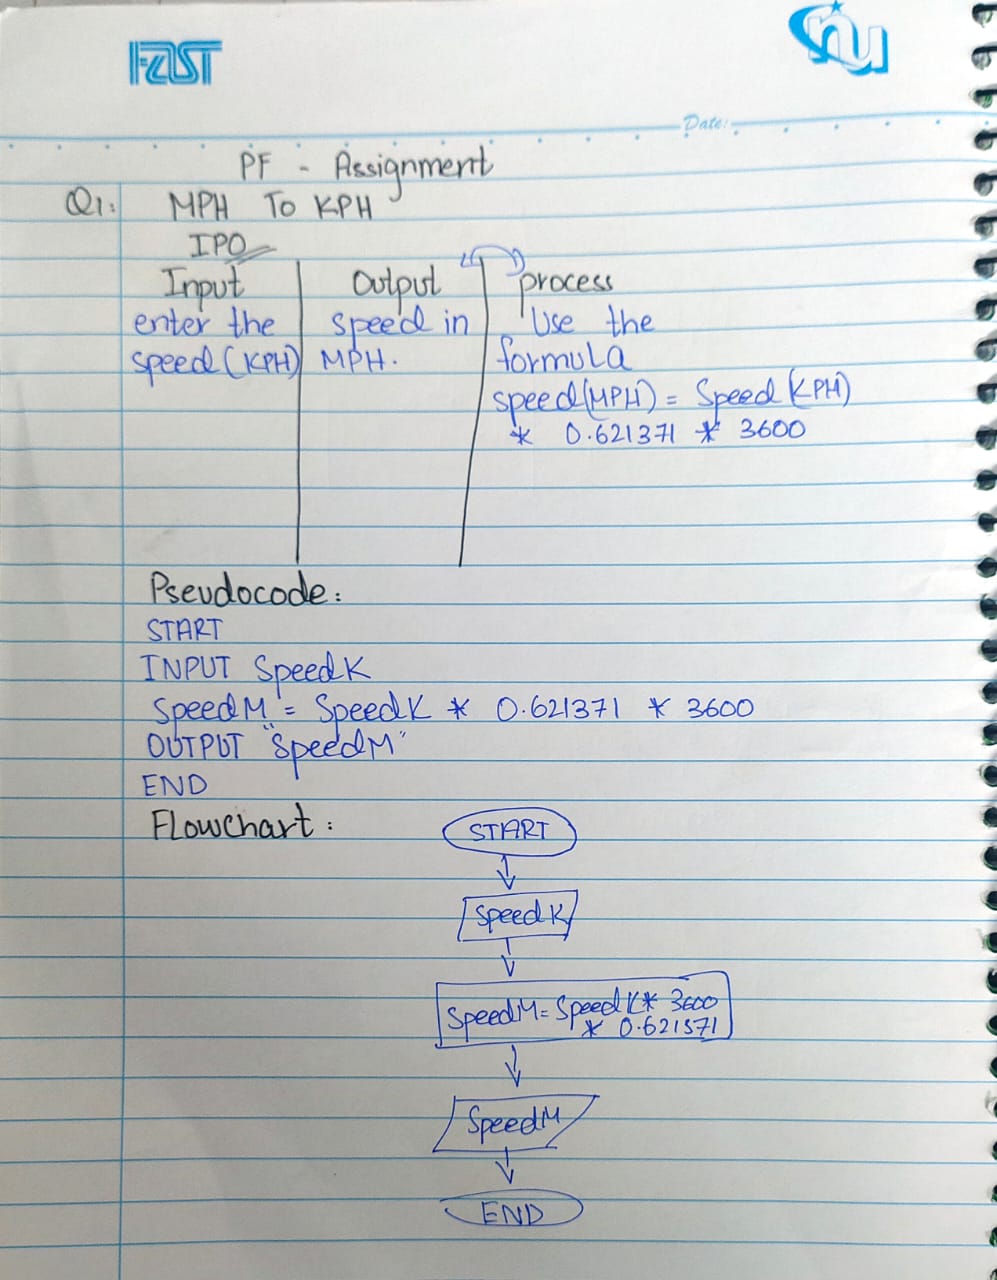 FAST
nu
Date:
PF - Assignment
Q1: MPH To KPH
IPO
Input Output process
enter the speed in Use the
speed (KPH) MPH. formula
speed(MPH) = Speed (KPH)
* 0.621371 * 3600
Pseudocode:
START
INPUT SpeedK
SpeedM = SpeedK * 0.621371 * 3600
OUTPUT "SpeedM"
END
Flowchart:
START
SpeedK
SpeedM = SpeedK * 3600
* 0.621371
SpeedM
END